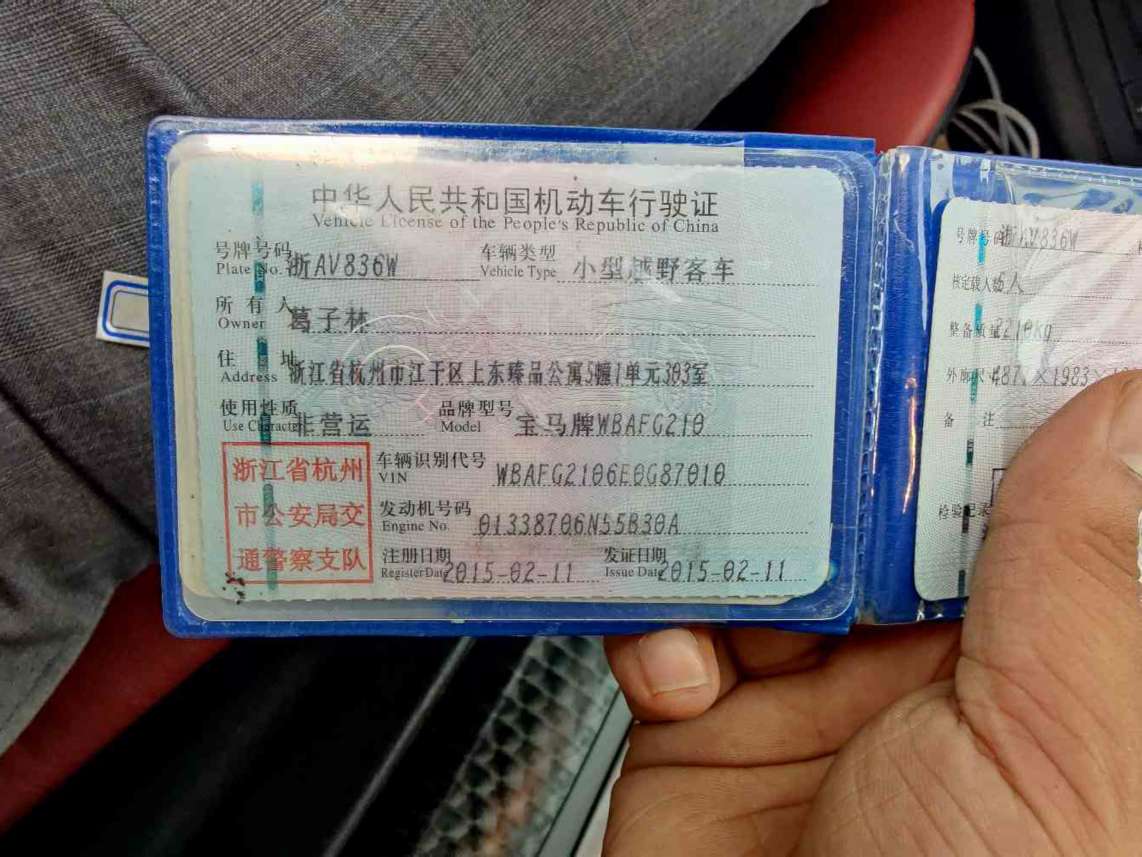 中华人民共和国机动车行驶证
Vehicle License of the People's Republic of China
号牌号码 浙AV836W 车辆类型 小型越野客车
Plate No. Vehicle Type
所有人 葛子林
Owner
住址 浙江省杭州市江干区上东臻品公寓5幢1单元303室
Address
使用性质 非营运 品牌型号 宝马牌WBAFG210
Use Character Model
车辆识别代号 WBAFG2106E0G87010
VIN
发动机号码 01338706N55B30A
Engine No.
注册日期 2015-02-11 发证日期 2015-02-11
Register Date Issue Date
浙江省杭州
市公安局交
通警察支队
号牌号码 浙AV836W
核定载人数 5人
整备质量 2210kg
外廓尺寸 ×1983×
备注
检验记录